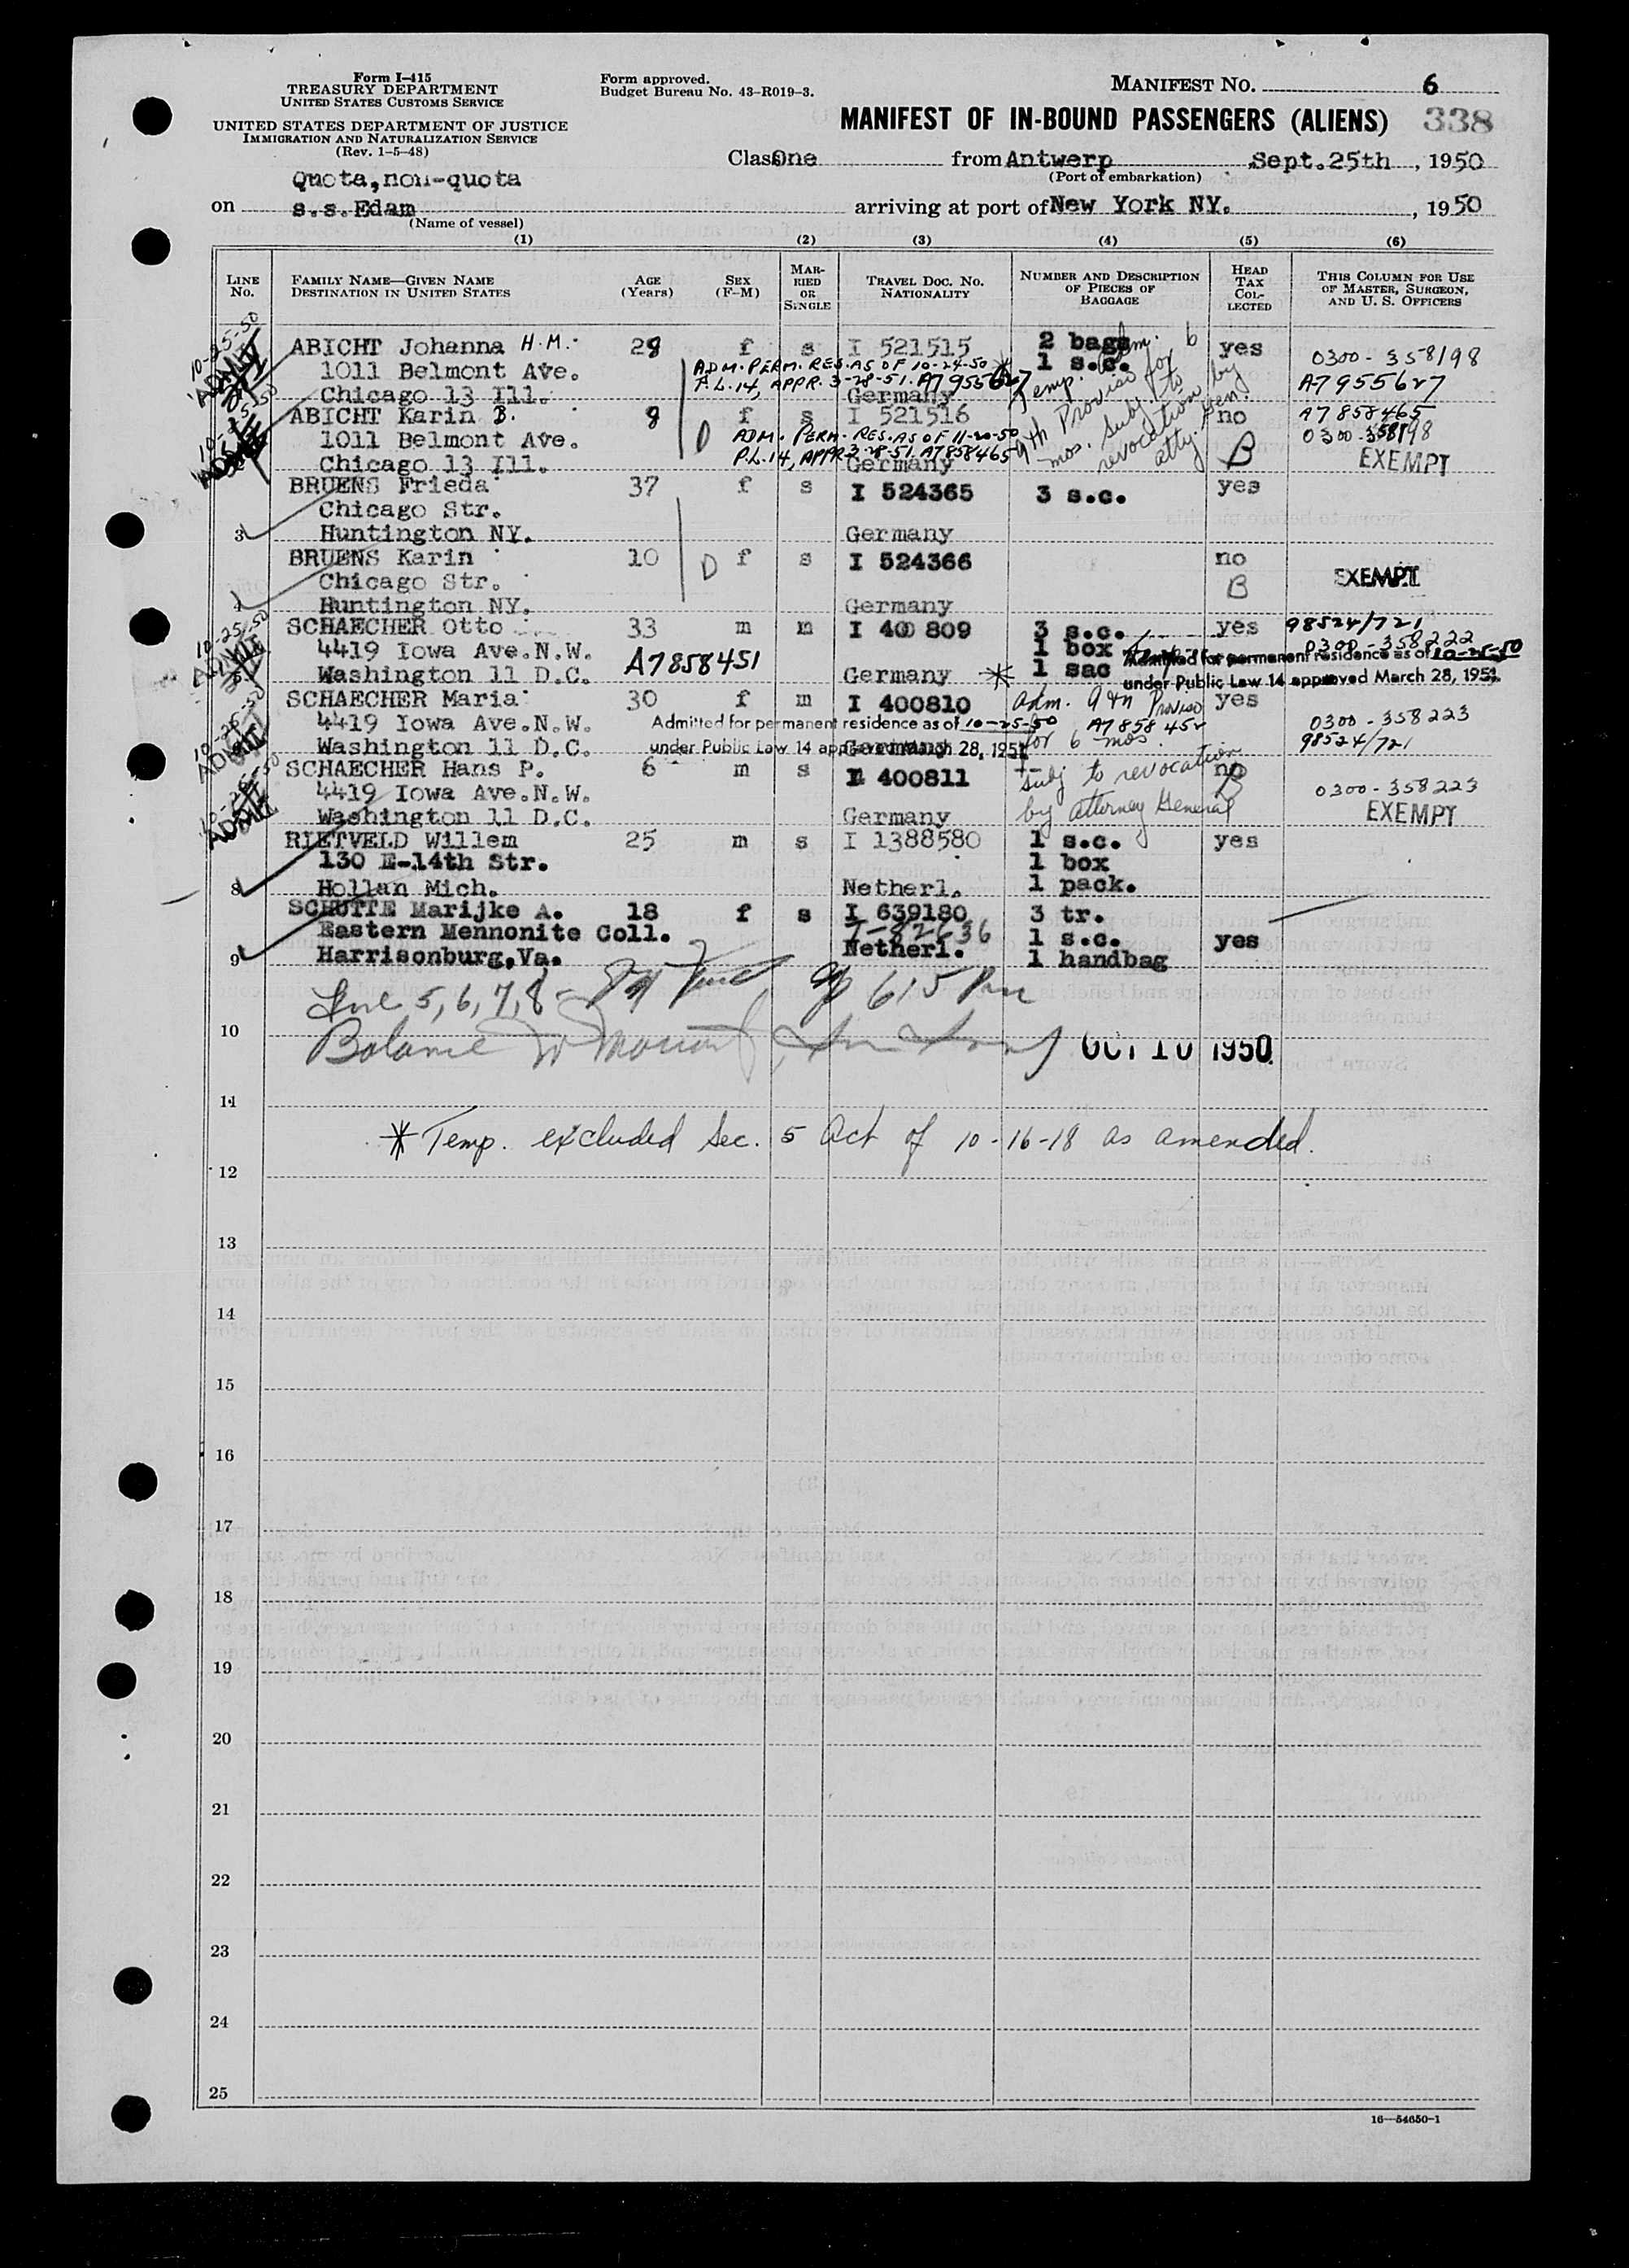 Form I-415
TREASURY DEPARTMENT
UNITED STATES CUSTOMS SERVICE
UNITED STATES DEPARTMENT OF JUSTICE
IMMIGRATION AND NATURALIZATION SERVICE
(Rev. 1-5-48)
Form approved.
Budget Bureau No. 43-R019-3.
MANIFEST NO. 6
MANIFEST OF IN-BOUND PASSENGERS (ALIENS) 338
Class One from Antwerp Sept.25th, 1950
(Port of embarkation)
Quota,non-quota
on s.s.Edam arriving at port of New York NY., 1950
(Name of vessel)
(1) (2) (3) (4) (5) (6)
LINE No. FAMILY NAME—GIVEN NAME DESTINATION IN UNITED STATES AGE (Years) SEX (F-M) MARRIED OR SINGLE TRAVEL DOC. NO. NATIONALITY NUMBER AND DESCRIPTION OF PIECES OF BAGGAGE HEAD TAX COLLECTED THIS COLUMN FOR USE OF MASTER, SURGEON, AND U. S. OFFICERS
10-25-50 ADMIT ABICHT Johanna H.M. f s I 521515 2 bags yes 0300-358198
1011 Belmont Ave. ADM. PERM. RES. AS OF 10-24-50 1 s.c. A7955627
Chicago 13 Ill. P.L.14, APPR. 3-28-51. A7955627 Germany
Temp. adm. 9th Proviso for 6 mos. subj to revocation by atty. Gen.
ABICHT Karin B. f s I 521516 no A7858465
1011 Belmont Ave. D ADM. PERM. RES. AS OF 11-20-50 0300-358198
Chicago 13 Ill. P.L.14, APPR 3-28-51. A7858465 Germany B EXEMPT
BRUENS Frieda 37 f s I 524365 3 s.c. yes
Chicago Str.
3 Huntington NY. Germany
BRUENS Karin 10 D f s I 524366 no EXEMPT
Chicago Str. B
4 Huntington NY. Germany
10-25-50 ADMIT SCHAECHER Otto 33 m m 3 s.c. yes 98524/721
4419 Iowa Ave.N.W. A7858451 1 box 0300-358222
Washington 11 D.C. Germany * 1 sac Admitted for permanent residence as of 10-25-50
under Public Law 14 approved March 28, 1951.
10-25-50 ADMIT SCHAECHER Maria 30 f m I 400810 adm. 9th Proviso yes
4419 Iowa Ave.N.W. Admitted for permanent residence as of 10-25-50 A7858452 0300-358223
Washington 11 D.C. under Public Law 14 approved March 28, 1951 Germany for 6 mos. 98524/721
ADMIT SCHAECHER Hans P. 6 m s I 400811 subj to revocation no
4419 Iowa Ave.N.W. B 0300-358223
Washington 11 D.C. Germany by attorney General EXEMPT
RIETVELD Willem 25 m s I 1388580 1 s.c. yes
130 E-14th Str. 1 box
8 Hollan Mich. Netherl. 1 pack.
SCHUTTE Marijke A. 18 f s I 639180 3 tr.
Eastern Mennonite Coll. 1 s.c. yes
9 Harrisonburg,Va. Netherl. 1 handbag
Line 5, 6, 7, 8 - 615 Pm
10 Balance OCT 10 1950
11
* Temp. excluded Sec. 5 Act of 10-16-18 as amended.
12
13
14
15
16
17
18
19
20
21
22
23
24
25
16—54650-1